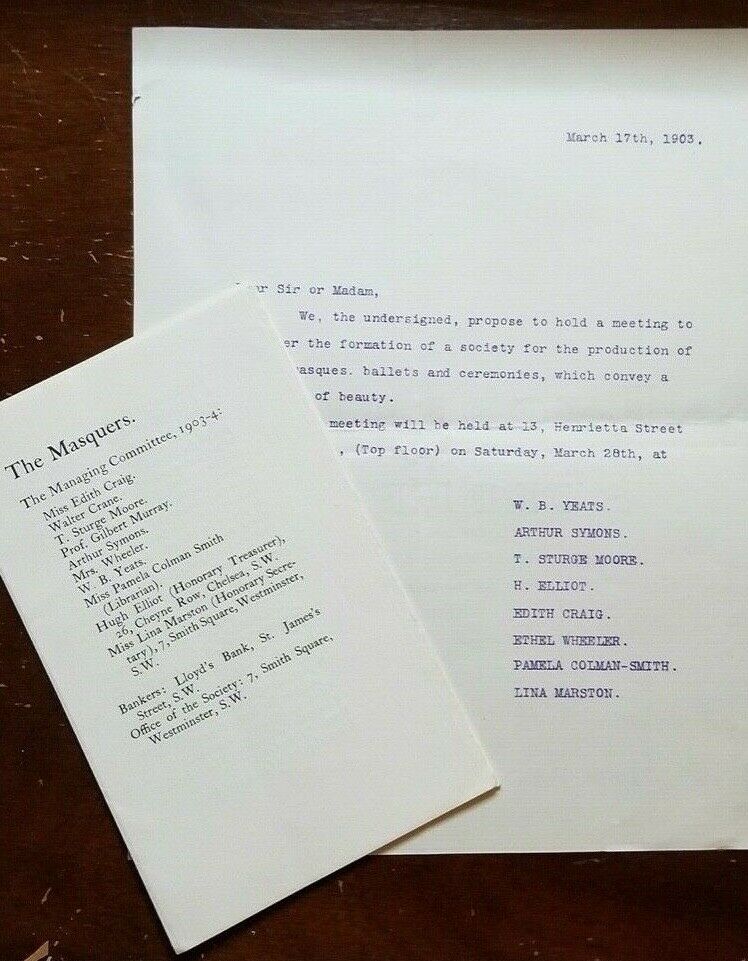 March 17th, 1903.
Sir or Madam,
We, the undersigned, propose to hold a meeting to
the formation of a society for the production of
masques. ballets and ceremonies, which convey a
of beauty.
meeting will be held at 13, Henrietta Street
, (Top floor) on Saturday, March 28th, at
W. B. YEATS.
ARTHUR SYMONS.
T. STURGE MOORE.
H. ELLIOT.
EDITH CRAIG.
ETHEL WHEELER.
PAMELA COLMAN-SMITH.
LINA MARSTON.
The Masquers.
The Managing Committee, 1903-4:
Miss Edith Craig.
Walter Crane.
T. Sturge Moore.
Prof. Gilbert Murray.
Arthur Symons.
Mrs. Wheeler.
W. B. Yeats.
Miss Pamela Colman Smith
(Librarian),
Hugh Elliot (Honorary Treasurer),
26, Cheyne Row, Chelsea, S.W.
Miss Lina Marston (Honorary Secre-
tary), 7, Smith Square, Westminster,
S.W.
Bankers: Lloyd's Bank, St. James's
Street, S.W.
Office of the Society: 7, Smith Square,
Westminster, S.W.